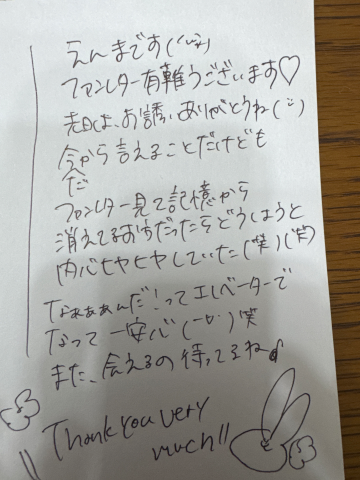 えんまです(^^)
ファンレター有難うございます♡
先日は、お誘いありがとうね(¨)
今から言えることだけども
だ
ファンレター見て記憶から
消えてるお方だったらどうしようと
内心ヒヤヒヤしていた(笑)(笑)
なぁぁぁんだ!ってエレベーターで
なって一安心(ー∪ー)笑
また、会えるの待ってるね
Thank you very
much!!